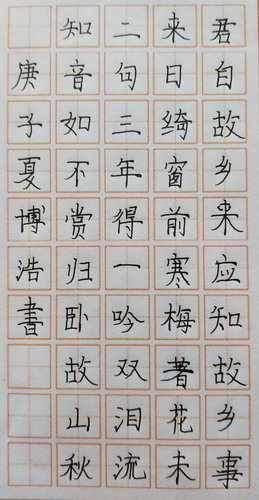 君自故乡来应知故乡事
来日绮窗前寒梅著花未
二句三年得一吟双泪流
知音如不赏归卧故山秋
庚子夏博浩書